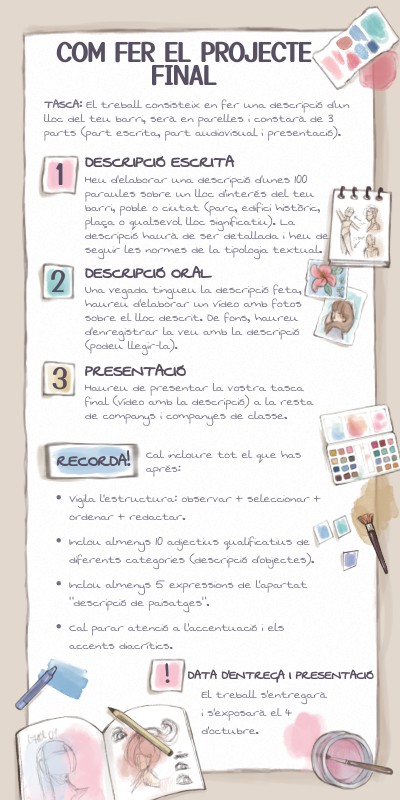 COM FER EL PROJECTE
FINAL
TASCA: El treball consisteix en fer una descripció d'un
lloc del teu barri, serà en parelles i constarà de 3
parts (part escrita, part audiovisual i presentació).
1 DESCRIPCIÓ ESCRITA
Heu d'elaborar una descripció d'unes 100
paraules sobre un lloc d'interés del teu
barri, poble o ciutat (parc, edifici històric,
plaça o qualsevol lloc significatiu). La
descripció haurà de ser detallada i heu de
seguir les normes de la tipologia textual.
2 DESCRIPCIÓ ORAL
Una vegada tingueu la descripció feta,
haureu d'elaborar un vídeo amb fotos
sobre el lloc descrit. De fons, haureu
d'enregistrar la veu amb la descripció
(podeu llegir-la).
3 PRESENTACIÓ
Haureu de presentar la vostra tasca
final (vídeo amb la descripció) a la resta
de companys i companyes de classe.
RECORDA!
Cal incloure tot el que has
aprés:
• Vigila l'estructura: observar + seleccionar +
ordenar + redactar.
• Inclou almenys 10 adjectius qualificatius de
diferents categories (descripció d'objectes).
• Inclou almenys 5 expressions de l'apartat
"descripció de paisatges".
• Cal parar atenció a l'accentuació i els
accents diacrítics.
! DATA D'ENTREGA I PRESENTACIÓ
El treball s'entregarà
i s'exposarà el 4
d'octubre.